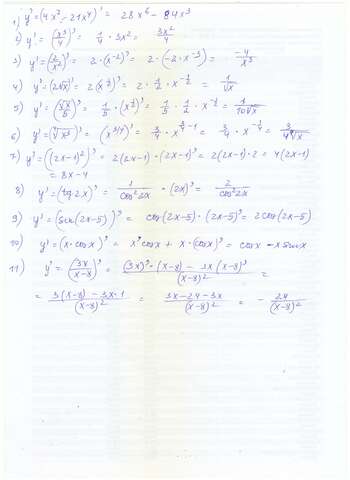 1) y' = (4x⁷ - 21x⁴)' = 28x⁶ - 84x³
2) y' = (x³/4)' = 1/4 · 3x² = 3x²/4
3) y' = (2/x²)' = 2·(x⁻²)' = 2·(-2·x⁻³) = -4/x³
4) y' = (2√x)' = 2(x^½)' = 2·1/2·x^-½ = 1/√x
5) y' = (√x/5)' = 1/5·(x^½)' = 1/5·1/2·x^-½ = 1/10√x
6) y' = (⁴√x³)' = (x^3/4)' = 3/4·x^(3/4-1) = 3/4·x^-1/4 = 3/4⁴√x
7) y' = ((2x-1)²)' = 2(2x-1)·(2x-1)' = 2(2x-1)·2 = 4(2x-1)
= 8x-4
8) y' = (tg2x)' = 1/cos²2x · (2x)' = 2/cos²2x
9) y' = (sin(2x-5))' = cos(2x-5)·(2x-5)' = 2cos(2x-5)
10) y' = (x·cosx)' = x'cosx + x·(cosx)' = cosx - x sinx
11) y' = (3x/(x-8))' = ((3x)'·(x-8) - 3x(x-8)')/(x-8)² =
= (3(x-8) - 3x·1)/(x-8)² = (3x-24-3x)/(x-8)² = - 24/(x-8)²